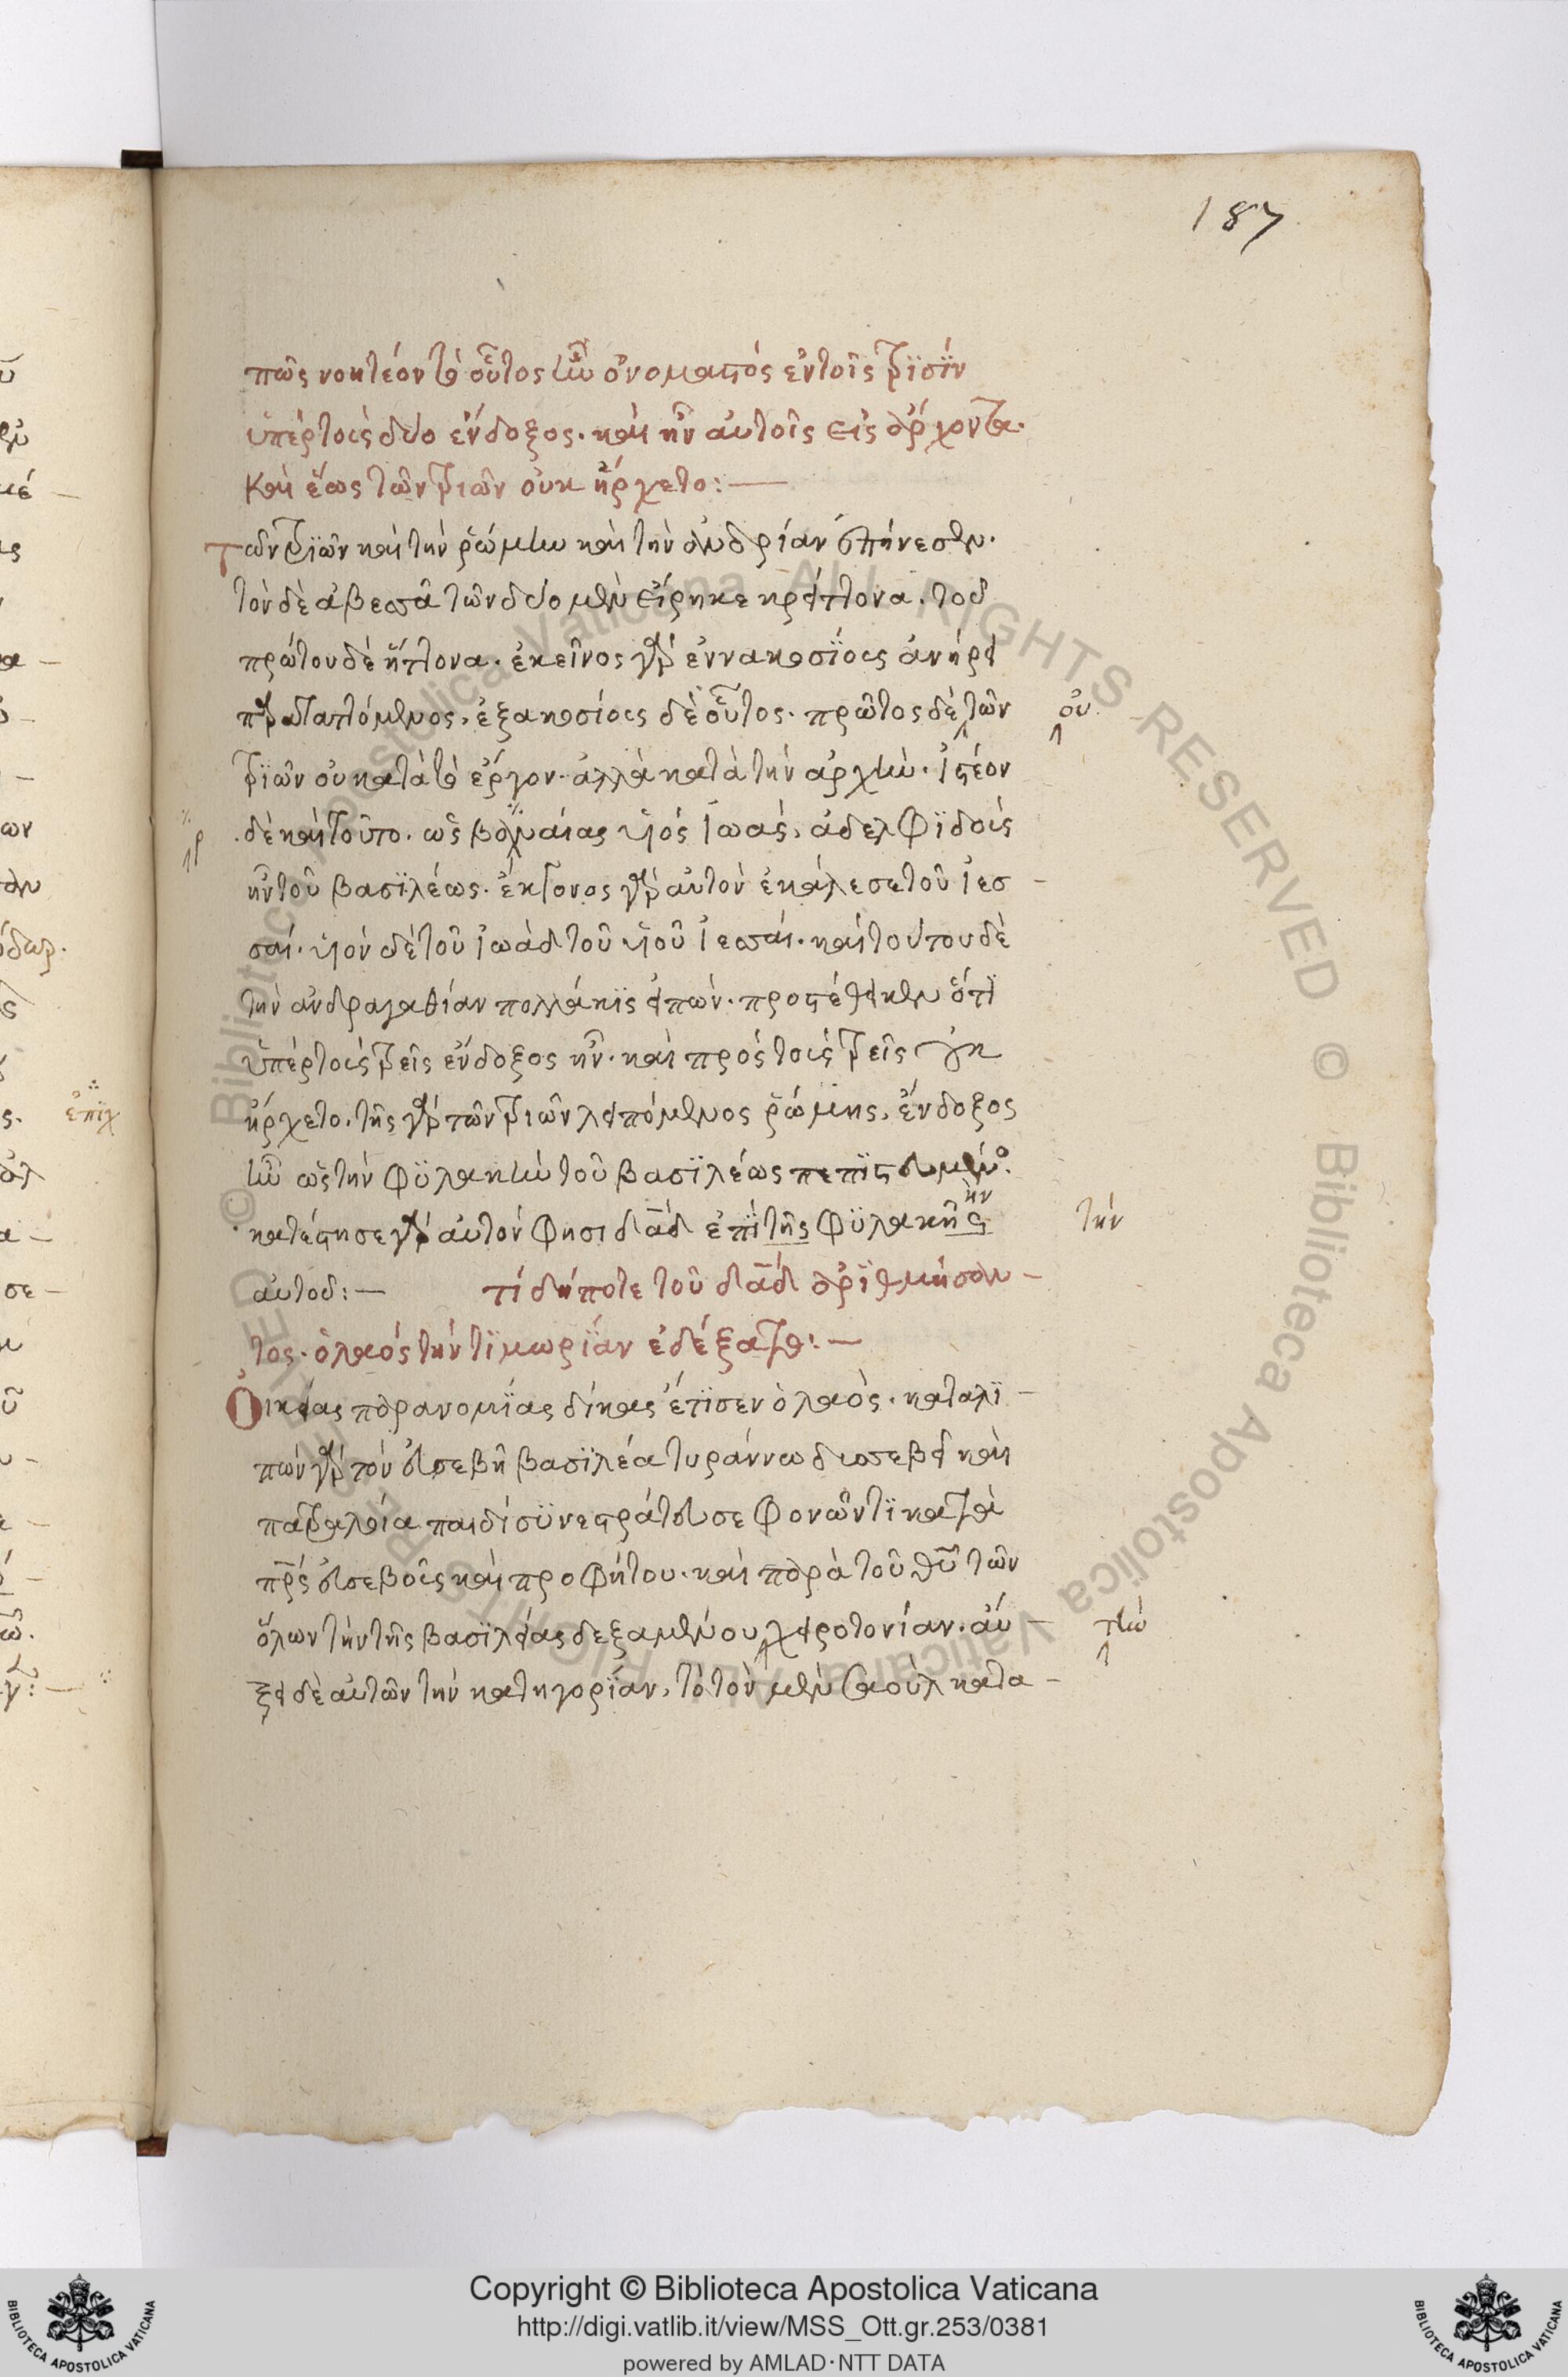 187
πῶς νοητέον τὸ οὗτος ἦν ὀνομαστὸς ἐν τοῖς τρϊσὶν
ὑπὲρ τοὺς δύο ἔνδοξος· καὶ ἦν αὐτοῖς εἰς ἄρχοντα·
καὶ ἕως τῶν τριῶν οὐκ ἤρχετο:—
Τῶν τρϊῶν καὶ τὴν ῥώμην καὶ τὴν ἀνδρίαν ἐπῄνεσεν·
τὸν δὲ ἀβεσσᾶ τῶν δύο μὲν εἴρηκε κρείττονα· τοῦ
πρώτου δὲ ἥττονα· ἐκεῖνος γὰρ ἐννακοσίους ἀνῄρει
παραταττόμενος, ἑξακοσίους δὲ οὗτος· πρῶτος δὲ τῶν
οὐ
τρϊῶν οὐ κατὰ τὸ ἔργον· ἀλλὰ κατὰ τὴν ἀρχήν· ἰστέον
δὲ καὶ τοῦτο· ὡς βαναίας υἱὸς ἰωάς, ἀδελφϊδοῦς
ἦν τοῦ βασϊλέως· ἔκγονος γὰρ αὐτὸν ἐκάλεσε τοῦ ἰεσ
σαί· υἱὸν δὲ τοῦ ἰωὰδ τοῦ υἱοῦ ἰεσσαί· καὶ τούτου δὲ
τὴν ἀνδραγαθίαν πολλάκϊς εἰπών· προστέθεικεν ὅτϊ
ὑπὲρ τοὺς τρεῖς ἔνδοξος ἦν· καὶ πρὸς τοὺς τρεῖς οὐκ
ἤρχετο· τῆς γὰρ τῶν τριῶν λειπόμενος ῥώμης, ἔνδοξος
ἦν ὡς τὴν φϋλακὴν τοῦ βασϊλέως πεπϊστευμένος·
κατέστησε γὰρ αὐτόν φησι δᾱδ ἐπὶ τῆς φϋλακῆς
ην
τὴν
αὐτοῦ:— τί δήποτε τοῦ δᾱδ ἀρϊθμήσαν
τος· ὁ λαὸς τὴν τϊμωρίαν ἐδέξατο:—
Οἰκείας παρανομίας δίκας ἔτϊσεν ὁ λαός· καταλϊ
πὼν γὰρ τὸν εὐσεβῆ βασϊλέα τυράννω δυσσεβεῖ καὶ
πατραλοία παιδὶ σϋνεστράτευσε φονῶντϊ κατὰ
πρ̅ς εὐσεβοῦς καὶ προφήτου· καὶ παρὰ τοῦ θῡ τῶν
ὅλων τὴν τῆς βασϊλείας δεξαμένου χειροτονίαν· αὔ
τὴν
ξει δὲ αὐτῶν τὴν κατηγορίαν, τὸ τὸν μὲν σαοὺλ κατα
ἐπϊχ
Copyright © Biblioteca Apostolica Vaticana
http://digi.vatlib.it/view/MSS_Ott.gr.253/0381
powered by AMLAD·NTT DATA